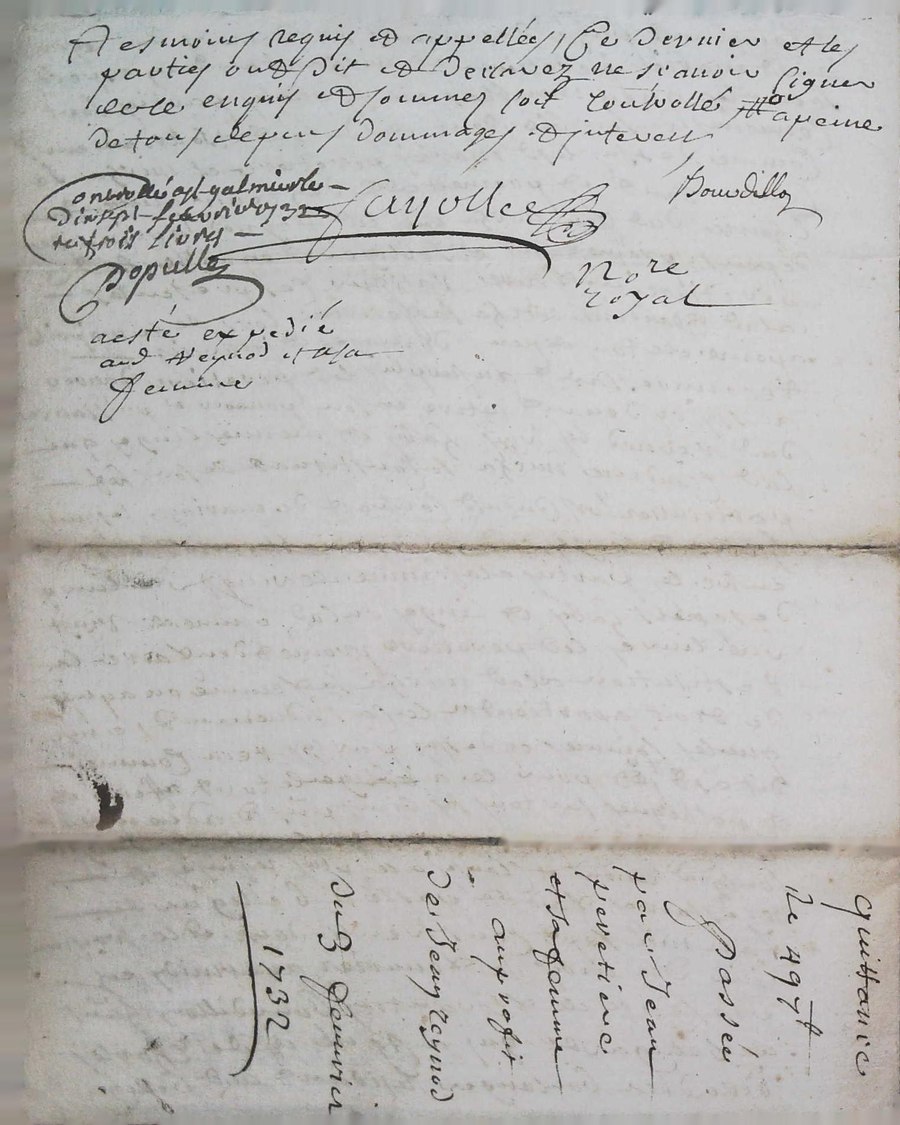 Tesmoins requis et appellées, Ce Dernier et les
parties ont dit et declarez ne scavoir signer
de ce enquis et sommez soit controllé à peine
de tous depens dommages et interets
Bourdillon
Fayolle
Controllé a st galmier le
dix sept feuvrier 1732
trois livres
Populle
No re
royal
a esté expedié
aud Reynod et a sa
femme
quittance
De 497 tt
Passée
par Jean
et sa femme
au profit
de Jean reynod
Du 3 feuvrier
1732